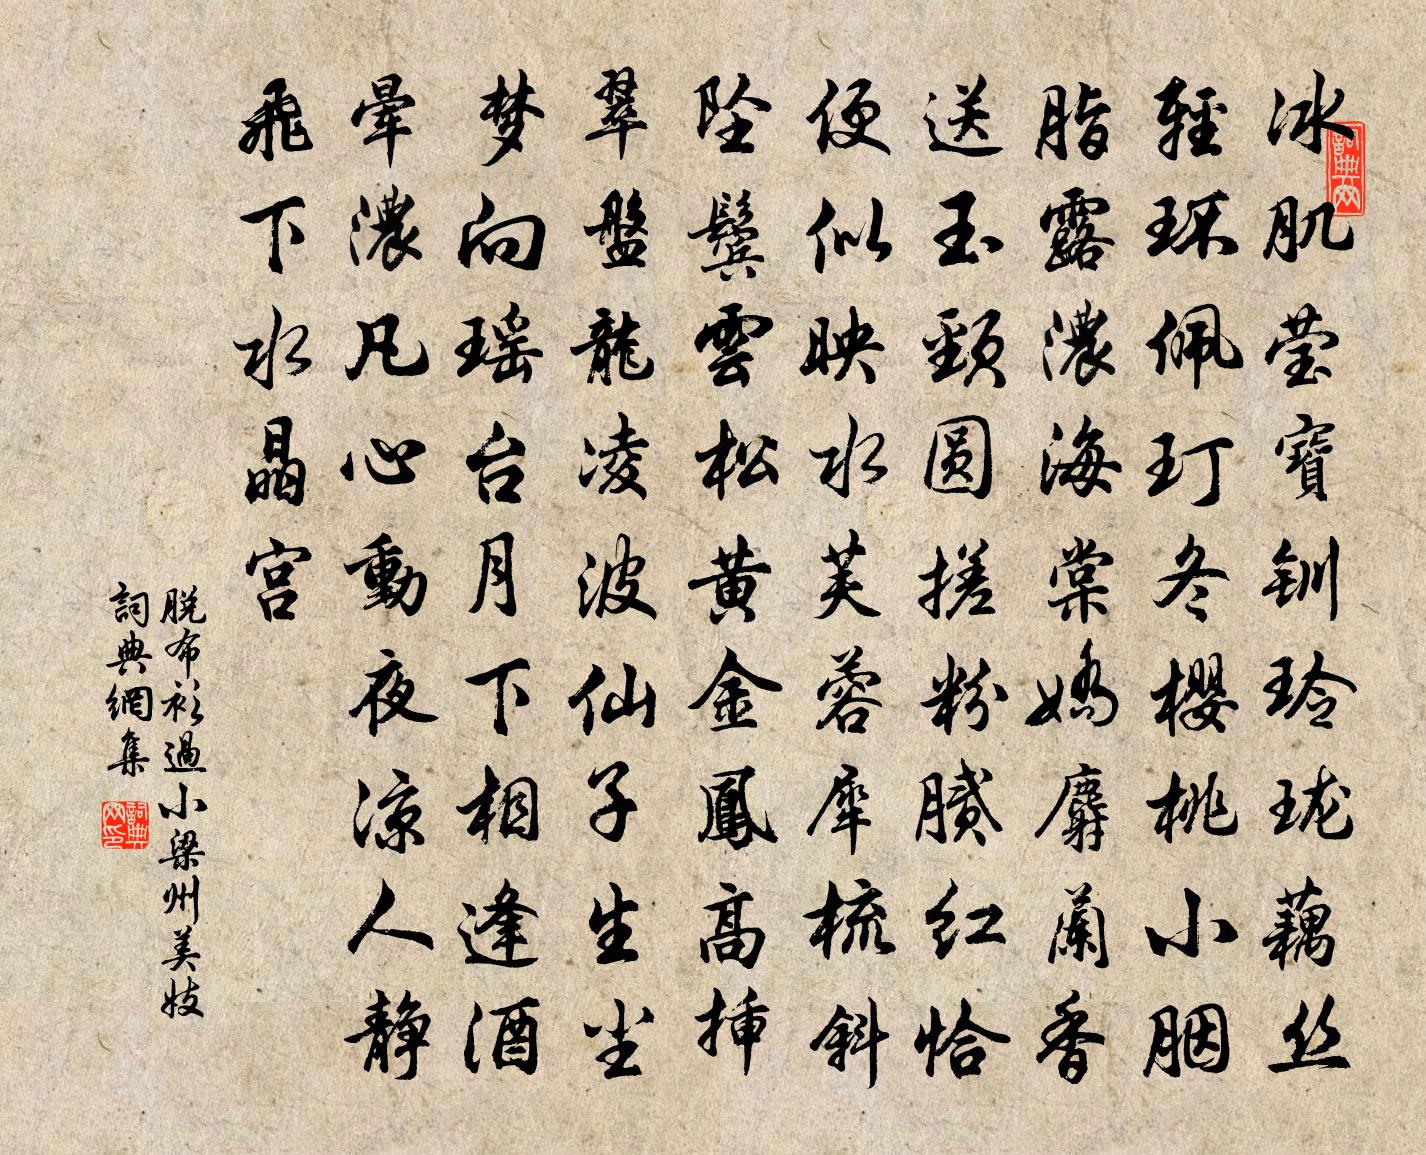 冰肌莹寶钏玲珑藕丝
輕环佩玎冬櫻桃小胭
脂露濃海棠嬌麝蘭香
送玉頸圆搓粉腻红恰
便似映水芙蓉犀梳斜
坠鬓雲松黄金鳳高挿
翠盤龍凌波仙子生尘
梦向瑶台月下相逢酒
暈濃凡心動夜凉人静
飛下水晶宫
脱布衫過小梁州美妓
詞典網集
詞典網
詞典網印